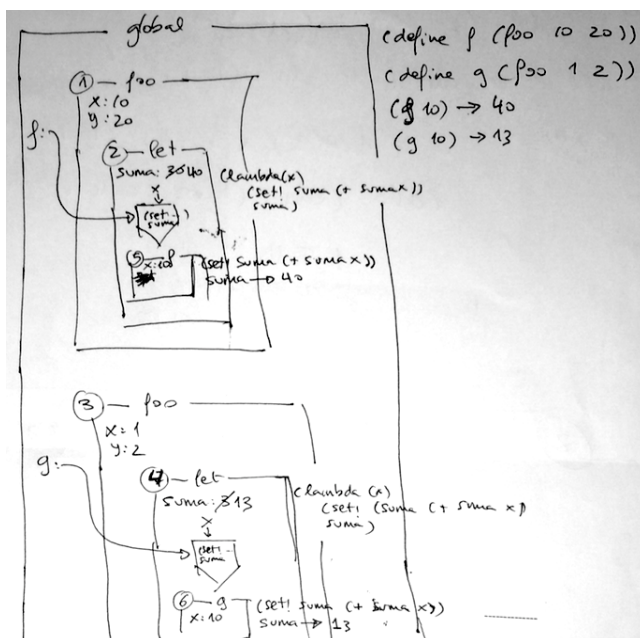 global
(define f (foo 10 20))
(define g (foo 1 2))
(f 10) → 40
(g 10) → 13
1 foo
x: 10
y: 20
f:
2 let
suma: 30 40
(lambda(x)
(set! suma (+ suma x))
suma)
x
(set! ..)
suma
5 f
x:10
(set! suma (+ suma x))
suma → 40
3 foo
x: 1
y: 2
g:
4 let
suma: 3 13
(lambda (x)
(set! (suma (+ suma x))
suma)
x
(set! ..
suma
6 g
x: 10
(set! suma (+ suma x))
suma → 13